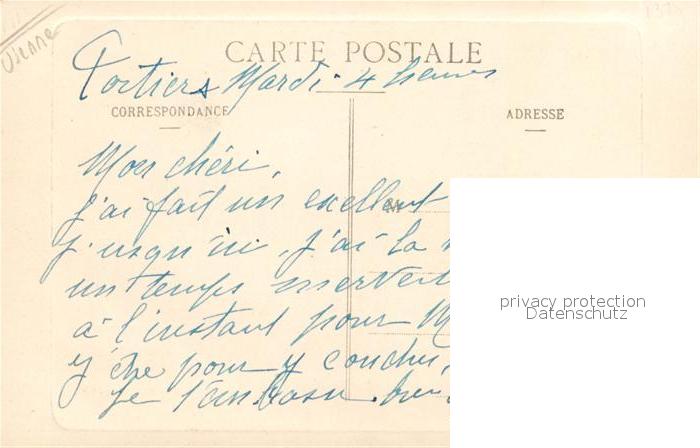 Vienne
CARTE POSTALE
Poitiers Mardi - 4 heures
CORRESPONDANCE
ADRESSE
Mon chéri,
j'ai fait un excellent
M
jusqu'ici, j'ai la
un temps
à l'instant pour
y être pour y coucher,
Je t'embrasse bien
privacy protection
Datenschutz